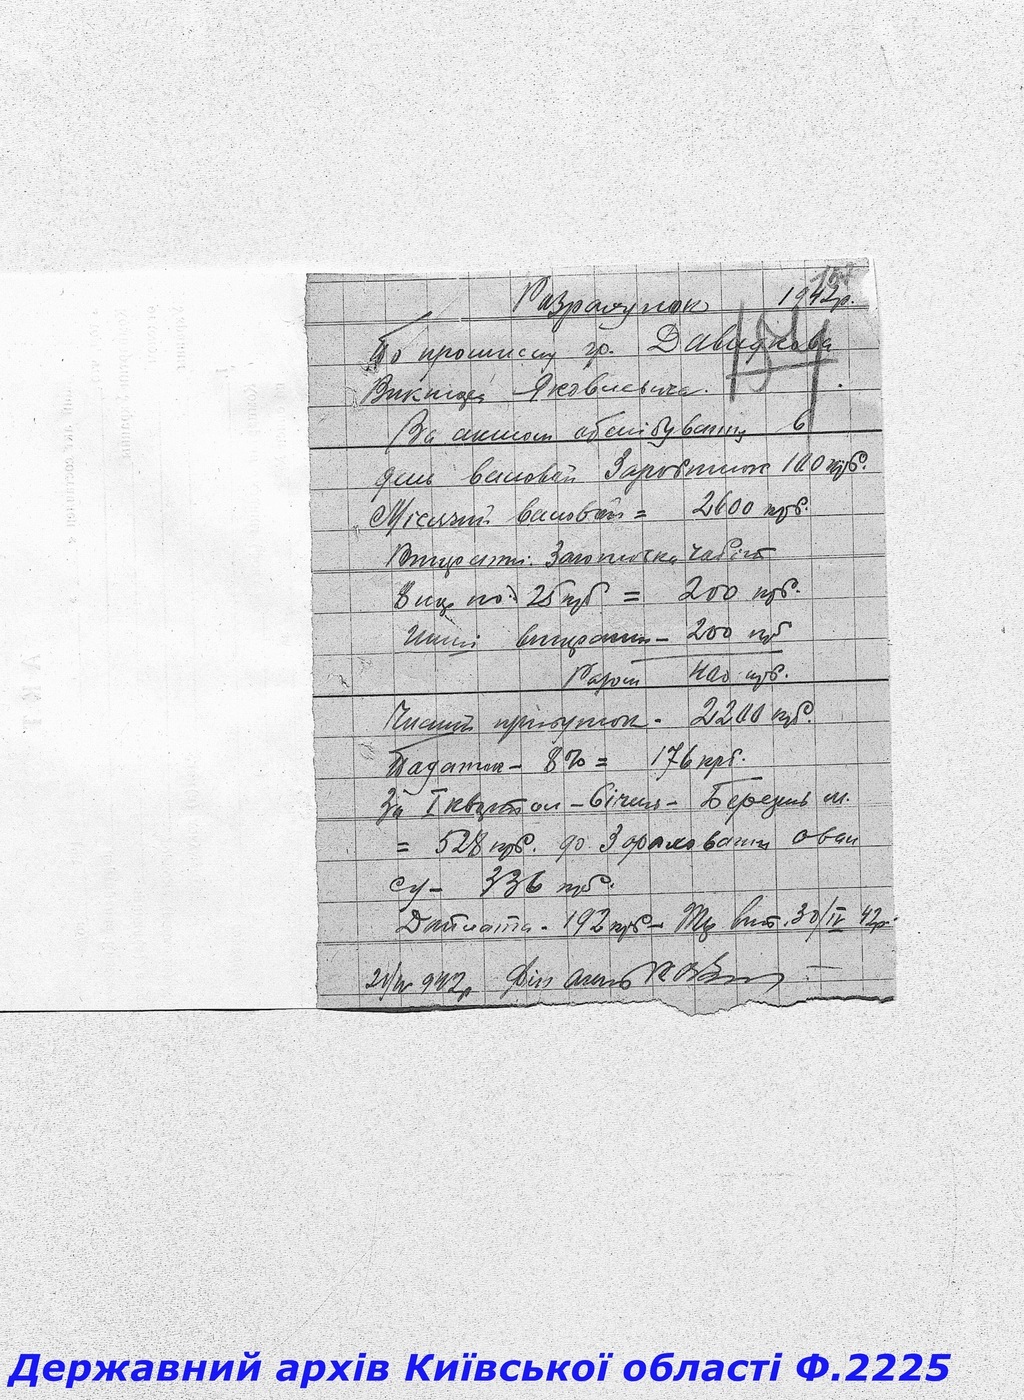 Розрахунок 1942р.
По промислу гр. Давидкова
Яковлевича.
За актом обслідування в
день валовый Заработок 100 крб.
Місячний валовый = 2600 крб.
Витрати: Заготовка чобіт
по 25 крб = 200 крб.
Инші витрати - 200 крб
Разом 400 крб.
Чистий прибуток - 2200 крб.
Податок - 8% = 176 крб.
За I квартал - Січень - Березень м.
= 528 крб. до Зараховання аван
су - 336 крб.
Доплата - 192 крб - 30/IV 42р.
21/IV 942р Фін агент
Державний архів Київської області Ф.2225